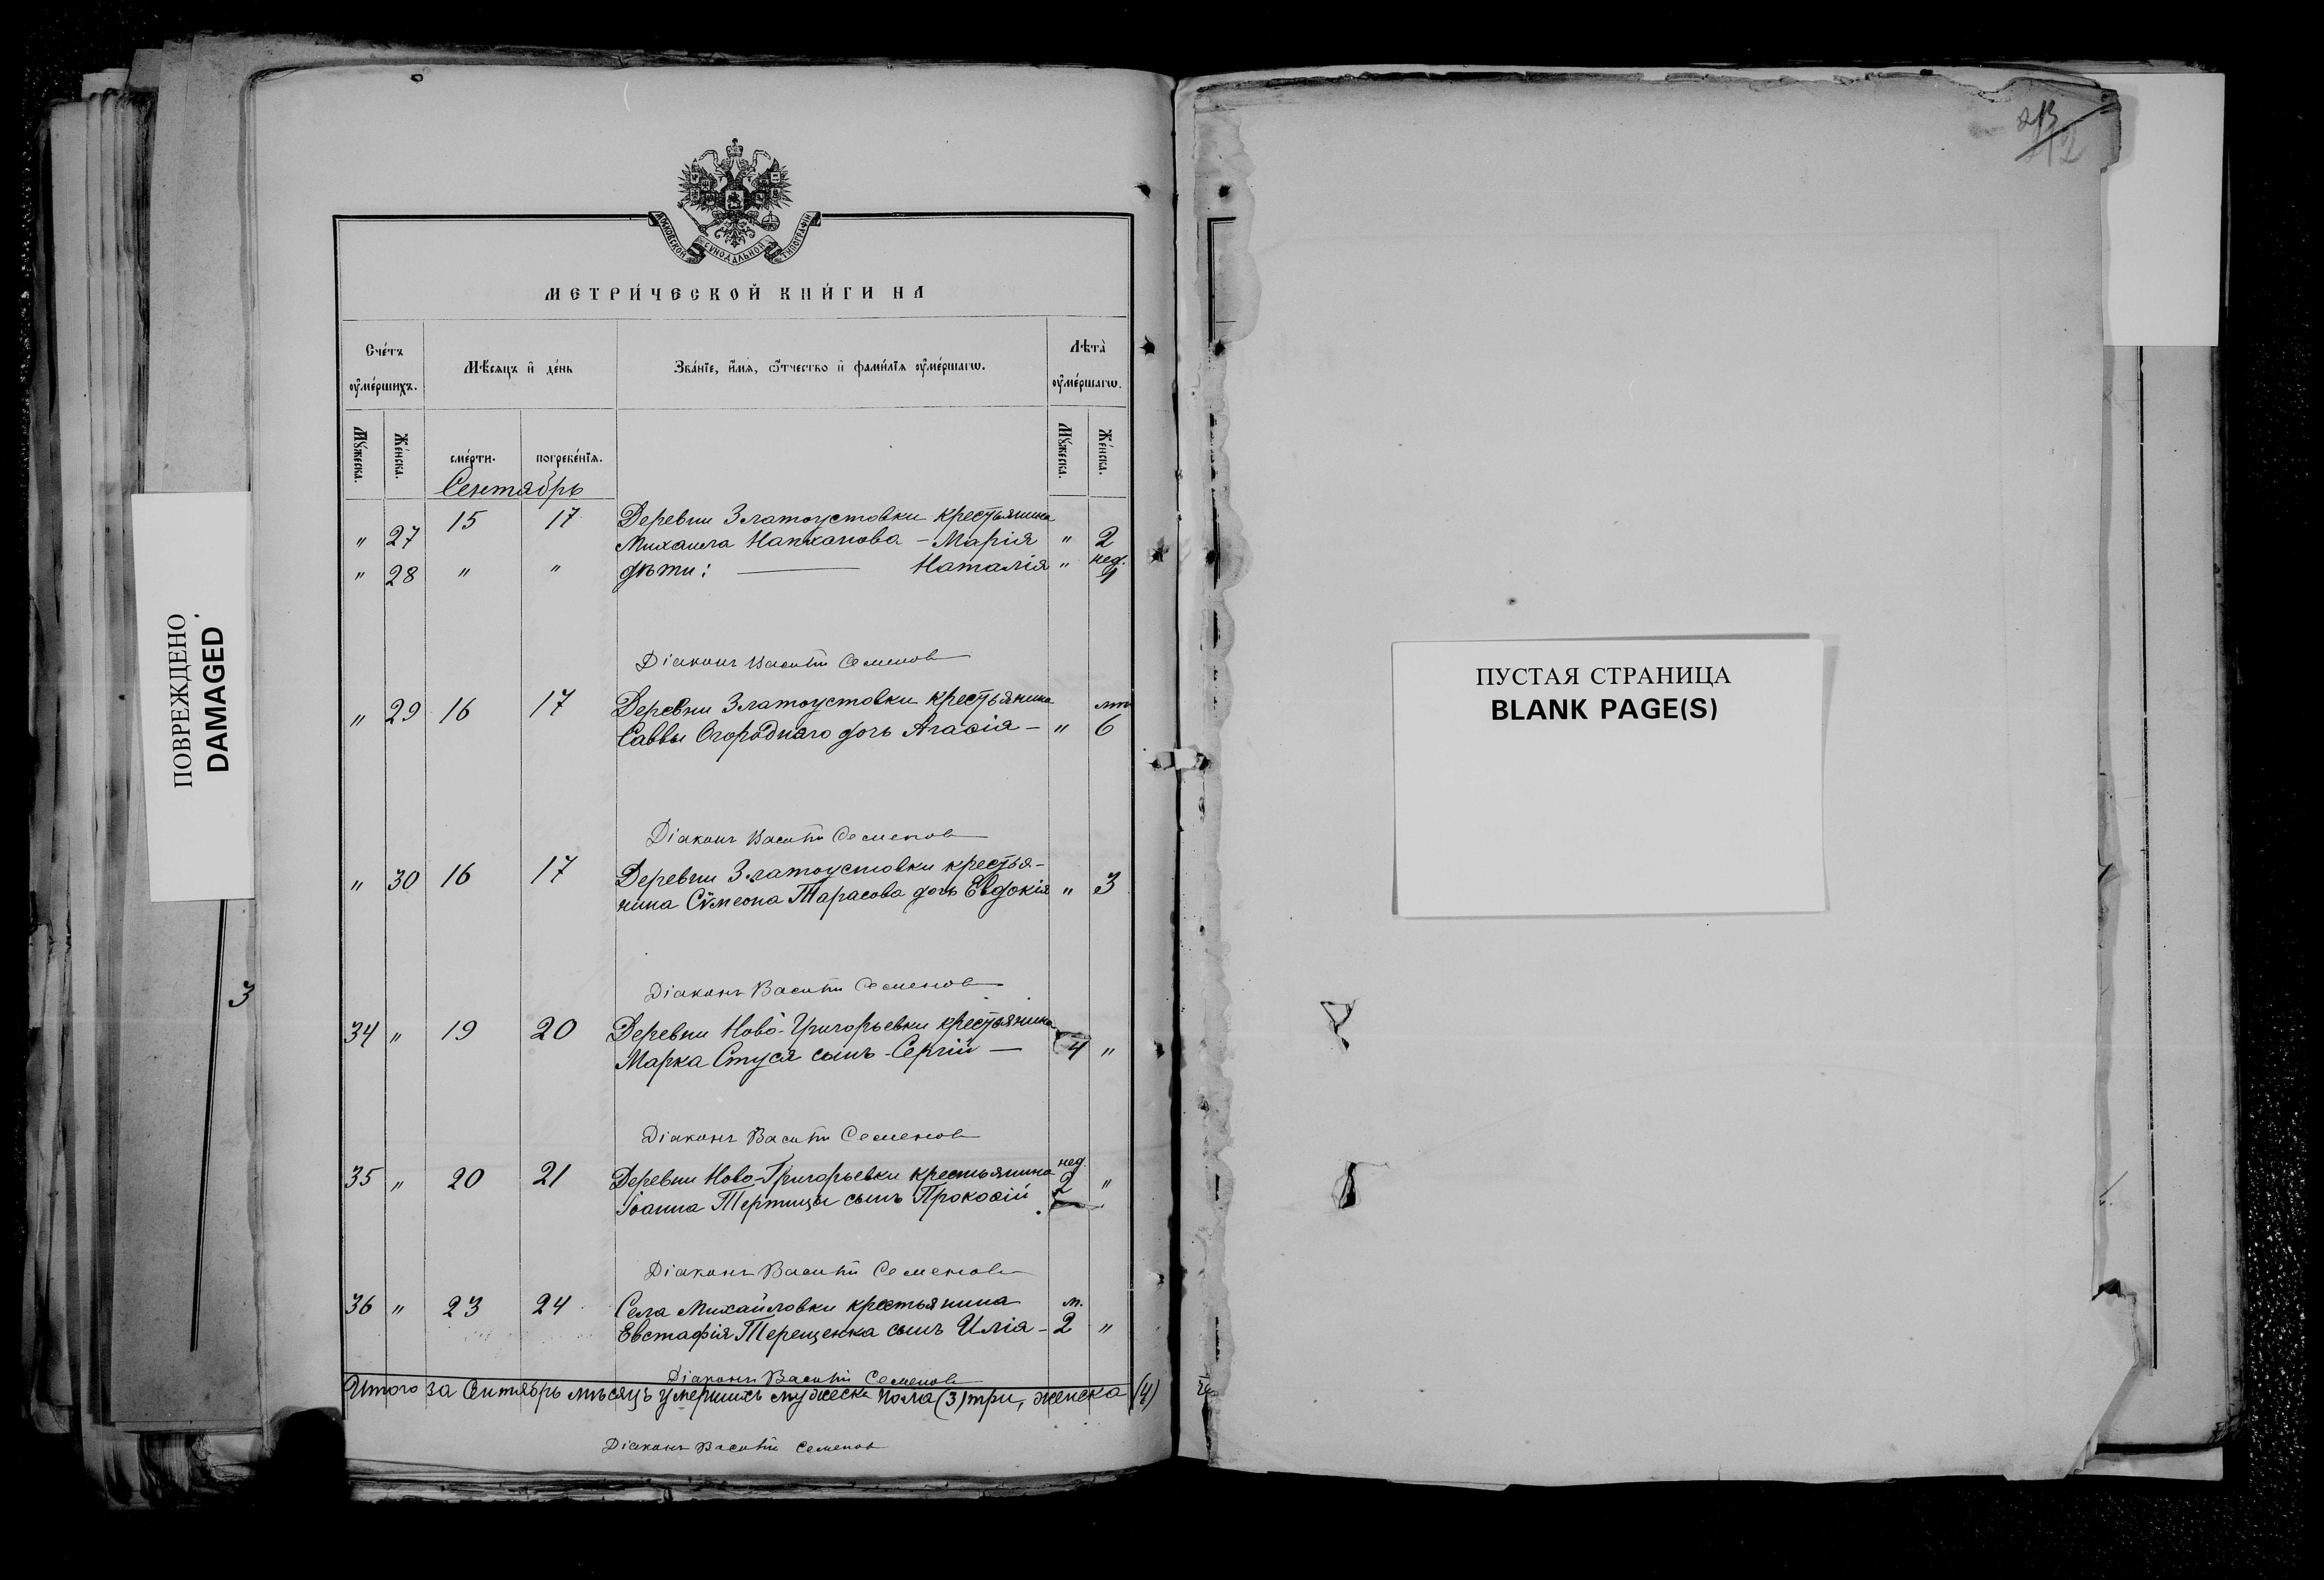 213
212
МОСКОВСКОЙ СУНОДАЛЬНОЙ ТИПОГРАФІИ
МЕТРИ́ЧЕСКОЙ КНИ́ГИ НА
Сче́тъ ᲂу҆ме́ршихъ.
Мѣ́сяцъ и҆ де́нь
Зва́нїе, и҆́мя, ѻ҆́тчество и҆ фами́лїя ᲂу҆ме́ршагѡ.
Лѣта̀ ᲂу҆ме́ршагѡ.
Мꙋ́жеска.
Же́нска.
сме́рти.
погребе́нїя.
Мꙋ́жеска.
Же́нска.
Сентябрь
15 17 Деревни Златоустовки крестьянина
" 27 Михаила - Марія " 2
нед.
" 28 " " дѣти: — Наталія "
Діаконъ Василій Семенов
Деревни Златоустовки крестьянина лѣт
" 29 16 17 Саввы Огороднаго дочь Агаѳія - " 6
Діаконъ Василій Семенов
" 30 16 17 Деревни Златоустовки крестья-
нина Сѵмеона Тарасова дочь Евдокія " 3
Діаконъ Василій Семенов
34 " 19 20 Деревни Ново-Григорьевки крестьянина
Марка Стуся сынъ - Сергій — 4 "
Діаконъ Василій Семенов
нед.
35 " 20 21 Деревни Ново-Григорьевки крестьянина 2 "
Іоанна Тертицы сынъ Прокопій
Діаконъ Василій Семенов
36 " 23 24 Села Михайловки крестьянина м.
Евстафія Терещенка сынъ Илія - 2 "
Діаконъ Василій Семенов
Итого за Сентябрь мѣсяцъ умершихъ мужеска пола (3) три, женска (4)
Діаконъ Василій Семенов
ПОВРЕЖДЕНО
DAMAGED
3
ПУСТАЯ СТРАНИЦА
BLANK PAGE(S)